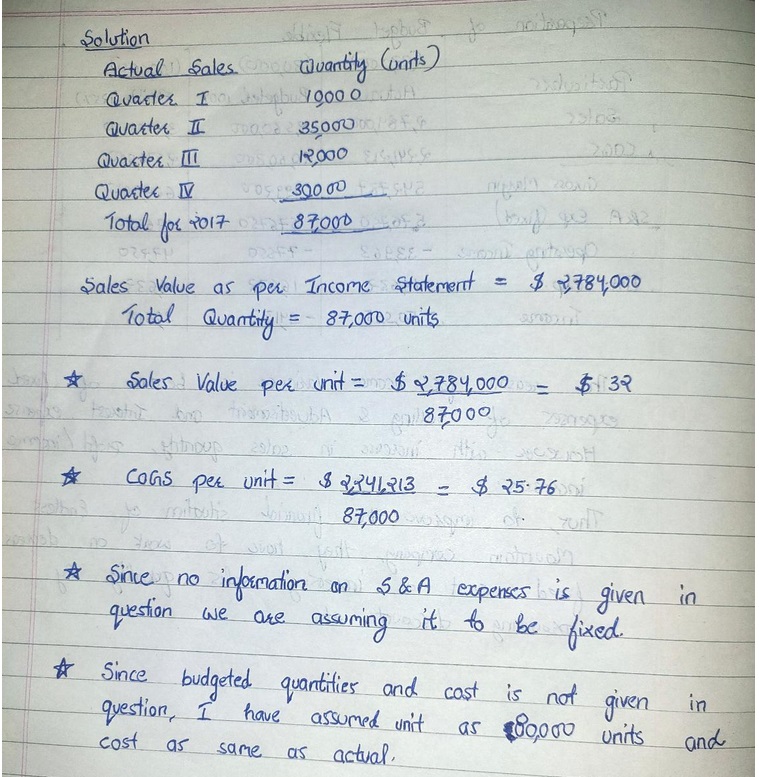 Solution
Actual Sales Quantity (units)
Quarter I 10000
Quarter II 35,000
Quarter III 12,000
Quarter IV 30000
Total for 2017 87,000
Sales Value as per Income Statement = $ 2,784,000
Total Quantity = 87,000 units
☆ Sales Value per unit = $ 2,784,000 = $ 32
87,000
☆ COGS per unit = $ 2,241,213 = $ 25.76
87,000
☆ Since no information on S & A expenses is given in
question we are assuming it to be fixed.
☆ Since budgeted quantities and cost is not given in
question, I have assumed unit as 80,000 units and
cost as same as actual.